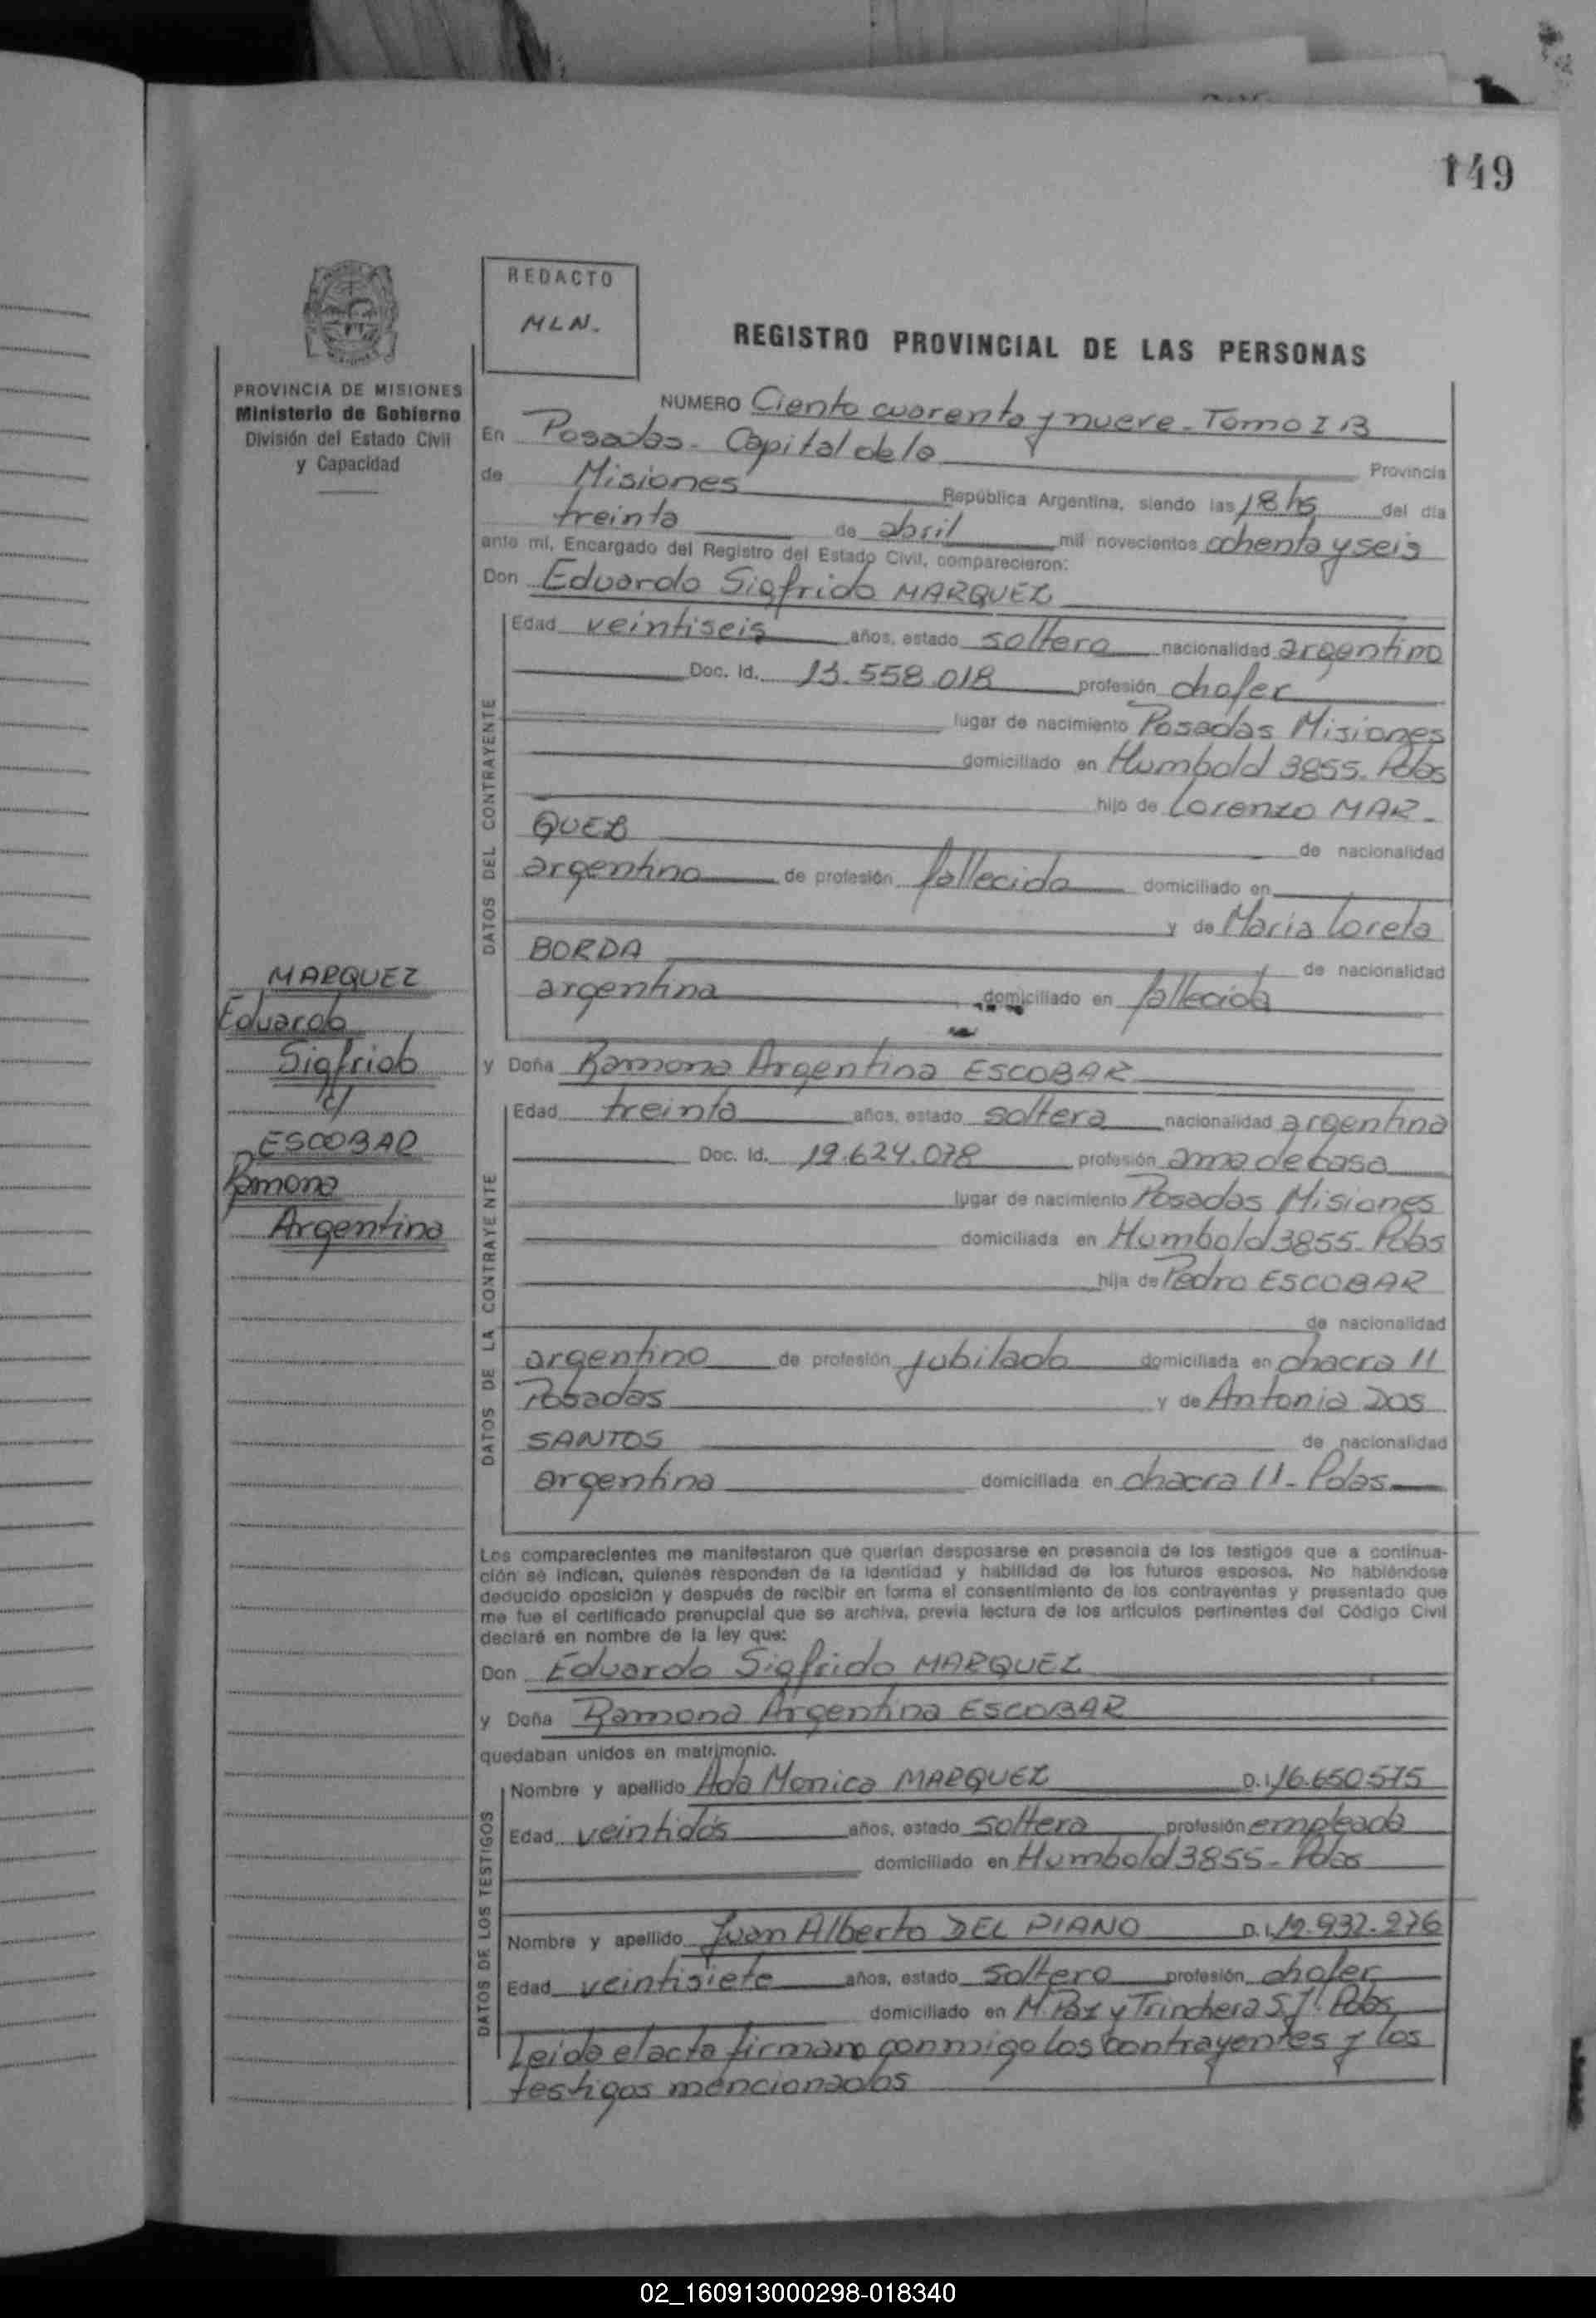 149
REDACTO
MLN.
REGISTRO PROVINCIAL DE LAS PERSONAS
PROVINCIA DE MISIONES
Ministerio de Gobierno
División del Estado Civil
y Capacidad
NUMERO Ciento cuarenta y nueve - Tomo I B
En Posadas - Capital de la Provincia
de Misiones República Argentina, siendo las 18 hs del día
treinta de abril mil novecientos ochenta y seis
ante mí, Encargado del Registro del Estado Civil, comparecieron:
Don Eduardo Sigfrido MARQUEZ
DATOS DEL CONTRAYENTE
Edad veintiseis años, estado soltero nacionalidad argentino
Doc. Id. 13.558.018 profesión chofer
lugar de nacimiento Posadas Misiones
domiciliado en Humbold 3855 - Pdas
hijo de Lorenzo MAR-
QUEZ de nacionalidad
argentino de profesión fallecido domiciliado en
y de Maria Loreta
BORDA de nacionalidad
argentina domiciliado en fallecida
MARQUEZ
Eduardo
Sigfrido
c/
ESCOBAR
Ramona
Argentina
y Doña Ramona Argentina ESCOBAR
DATOS DE LA CONTRAYENTE
Edad treinta años, estado soltera nacionalidad argentina
Doc. Id. 12.624.078 profesión ama de casa
lugar de nacimiento Posadas Misiones
domiciliada en Humbold 3855 - Pdas
hija de Pedro ESCOBAR
de nacionalidad
argentino de profesión jubilado domiciliada en chacra 11
Posadas y de Antonia DOS
SANTOS de nacionalidad
argentina domiciliada en chacra 11 - Pdas
Los comparecientes me manifestaron que querían desposarse en presencia de los testigos que a continua-
ción se indican, quienes responden de la identidad y habilidad de los futuros esposos. No habiéndose
deducido oposición y después de recibir en forma el consentimiento de los contrayentes y presentado que
me fue el certificado prenupcial que se archiva, previa lectura de los artículos pertinentes del Código Civil
declaré en nombre de la ley que:
Don Eduardo Sigfrido MARQUEZ
y Doña Ramona Argentina ESCOBAR
quedaban unidos en matrimonio.
DATOS DE LOS TESTIGOS
Nombre y apellido Ada Monica MARQUEZ D.I. 16.650.575
Edad veintidós años, estado soltera profesión empleada
domiciliado en Humbold 3855 - Pdas
Nombre y apellido Juan Alberto DEL PIANO D.I. 12.932.276
Edad veintisiete años, estado soltero profesión chofer
domiciliado en M. Paz y Trinchera S.J. Pdas
Leida el acta firman conmigo los contrayentes y los
testigos mencionados
02_160913000298-018340